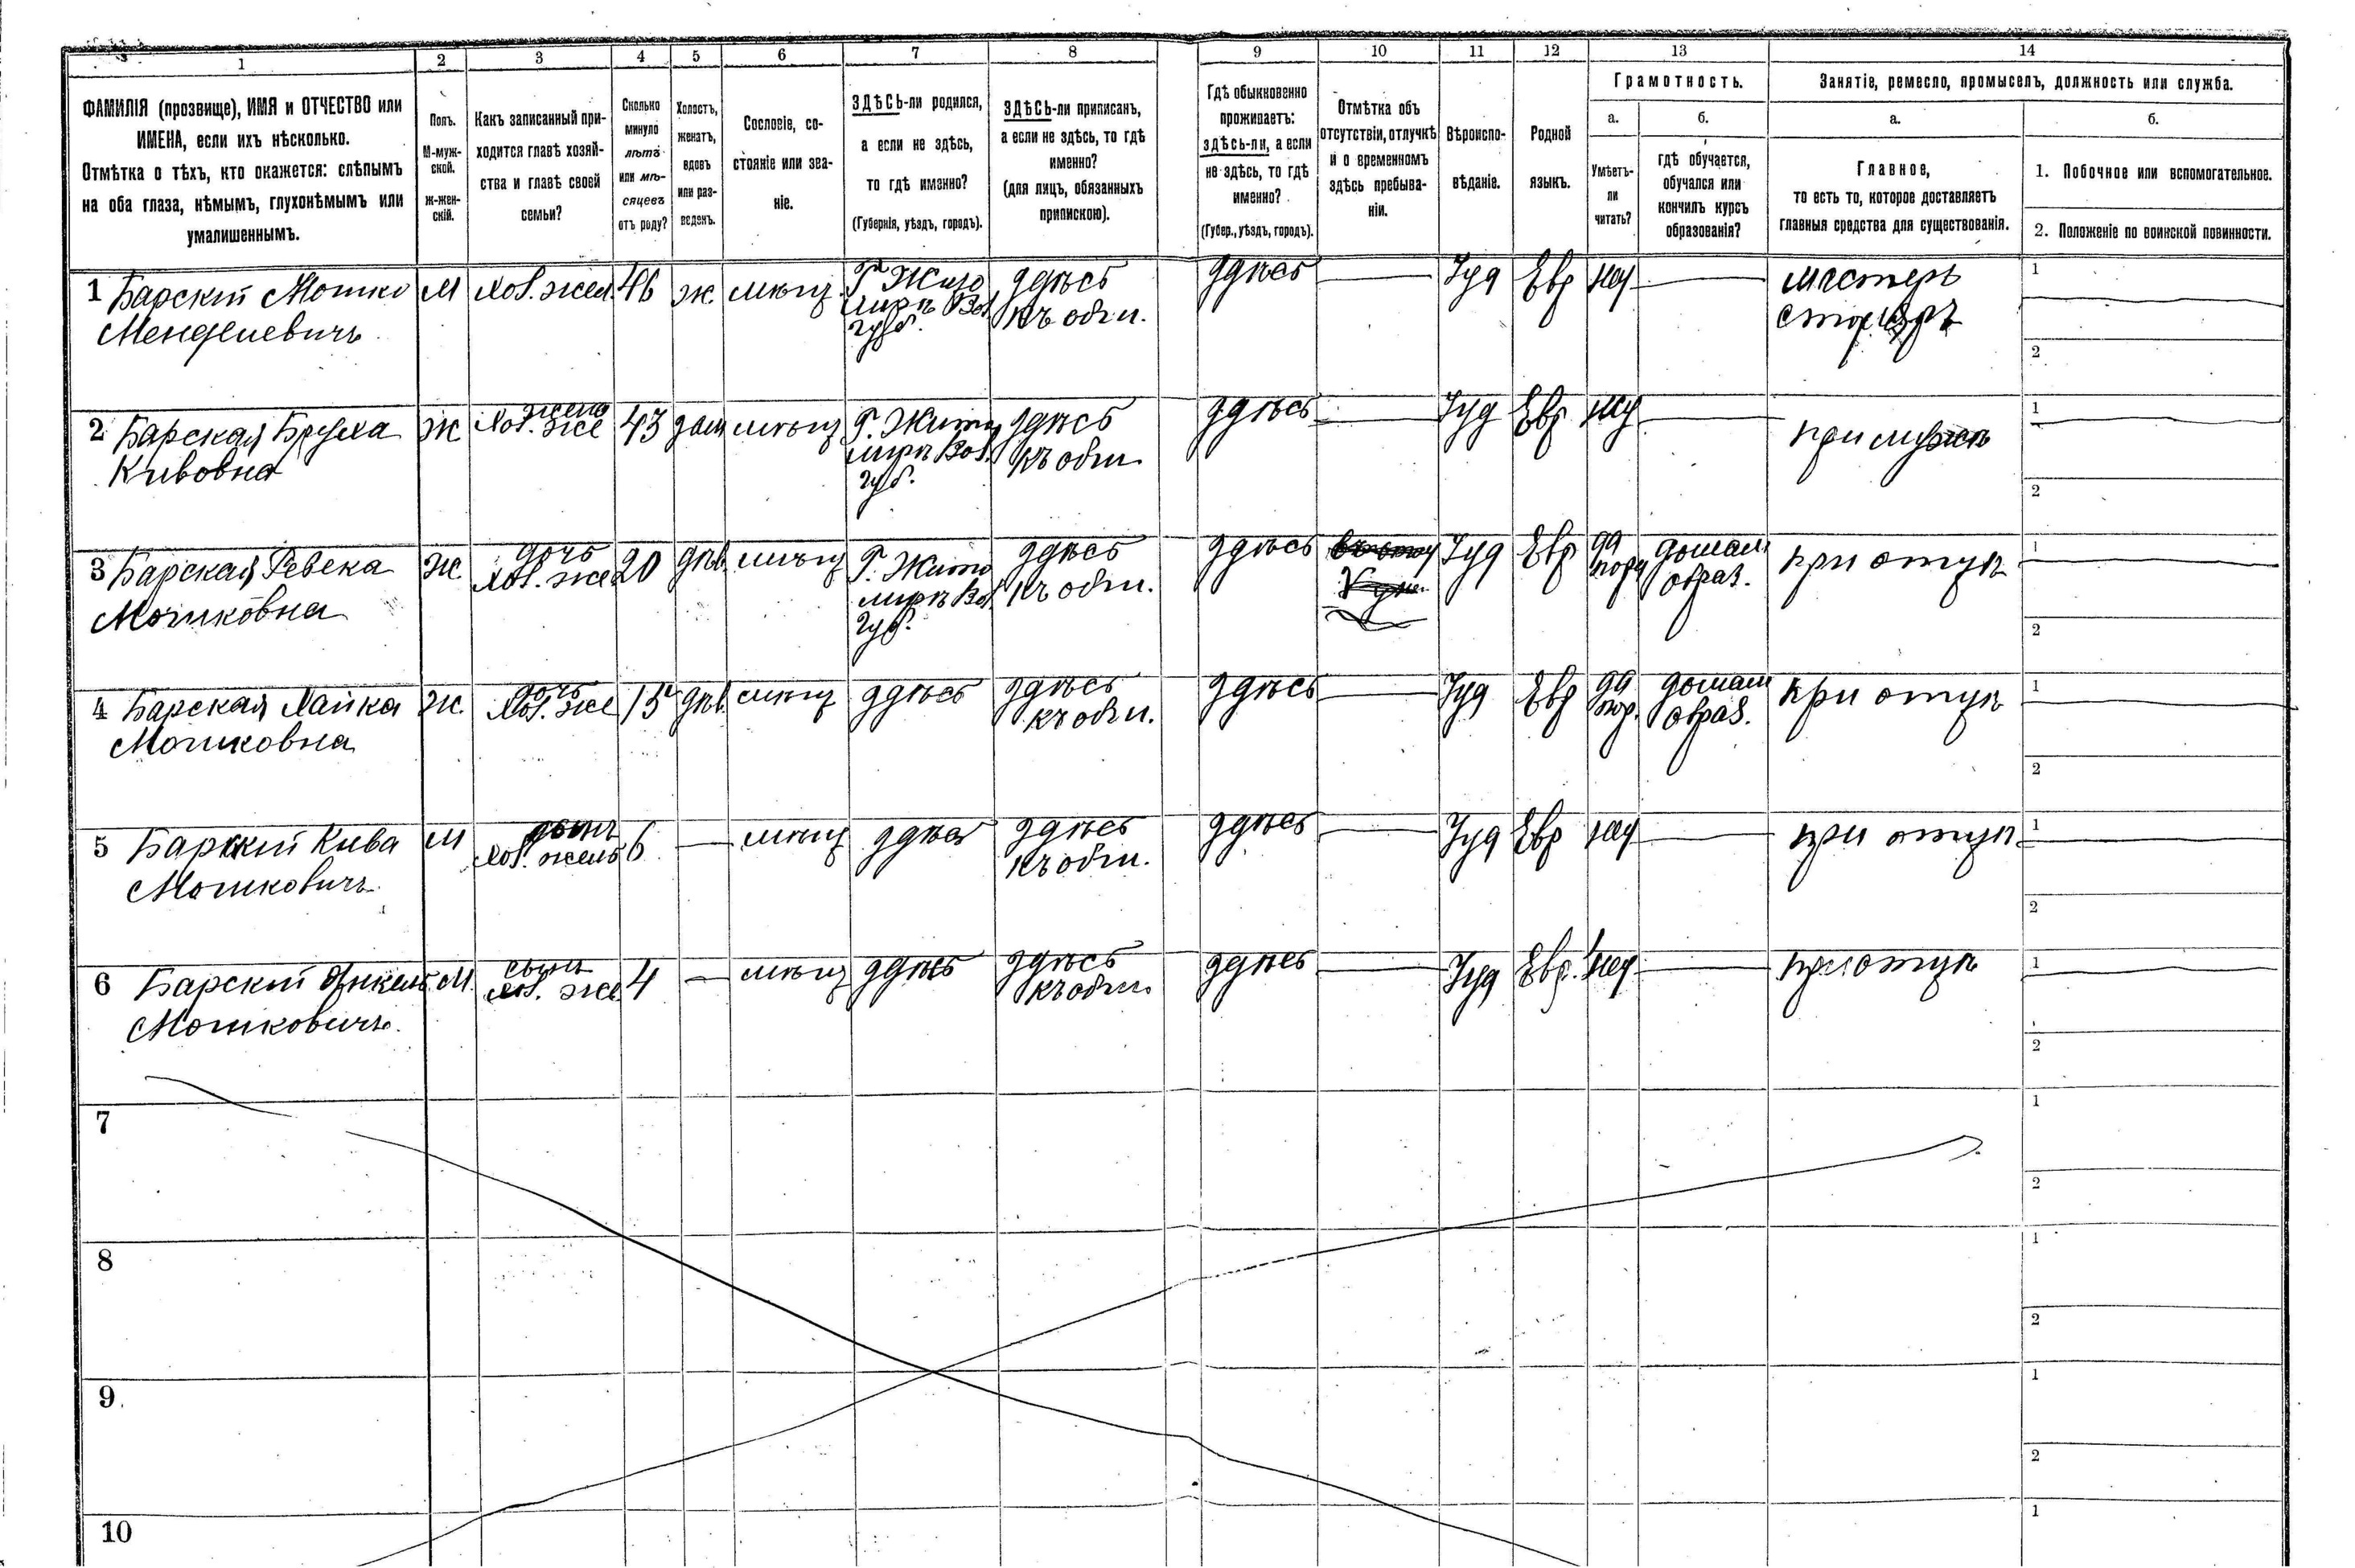 1 2 3 4 5 6 7 8 9 10 11 12 13 14
ФАМИЛІЯ (прозвище), ИМЯ и ОТЧЕСТВО или
ИМЕНА, если ихъ нѣсколько.
Отмѣтка о тѣхъ, кто окажется: слѣпымъ
на оба глаза, нѣмымъ, глухонѣмымъ или
умалишеннымъ.
Полъ.
М-муж-
ской.
ж-жен-
скій.
Какъ записанный при-
ходится главѣ хозяй-
ства и главѣ своей
семьи?
Сколько
минуло
лѣтъ
или мѣ-
сяцевъ
отъ роду?
Холостъ,
женатъ,
вдовъ
или раз-
веденъ.
Сословіе, со-
стояніе или зва-
ніе.
ЗДѢСЬ-ли родился,
а если не здѣсь,
то гдѣ именно?
(Губернія, уѣздъ, городъ).
ЗДѢСЬ-ли приписанъ,
а если не здѣсь, то гдѣ
именно?
(для лицъ, обязанныхъ
припискою).
Гдѣ обыкновенно
проживаетъ:
здѣсь-ли, а если
не здѣсь, то гдѣ
именно?
(Губер., уѣздъ, городъ).
Отмѣтка объ
отсутствіи, отлучкѣ
и о временномъ
здѣсь пребыва-
ніи.
Вѣроиспо-
вѣданіе.
Родной
языкъ.
Грамотность.
а.
Умѣетъ-
ли
читать?
б.
гдѣ обучается,
обучался или
кончилъ курсъ
образованія?
Занятіе, ремесло, промыселъ, должность или служба.
а.
Главное,
то есть то, которое доставляетъ
главныя средства для существованія.
б.
1. Побочное или вспомогательное.
2. Положеніе по воинской повинности.
1 Барскій Мошко М 46 ж. мѣщ. Г. Жито здѣсь здѣсь Іуд Евр нѣт мастеръ 1
Менделевичъ миръ Вол. къ общ.
губ. 2
2 Барская Бруха Ж жена 43 зам мѣщ Г. Жито здѣсь здѣсь Іуд Евр нѣт при мужѣ 1
Кивовна миръ Вол. къ общ
губ. 2
3 Барская Ревека Ж дочь 20 дѣв. мѣщ Г. Жито здѣсь здѣсь Іуд Евр да домаш. при отцѣ 1
Мошковна миръ Вол къ общ. образ.
губ. 2
4 Барская Хайка Ж. дочь 15 дѣв. мѣщ здѣсь здѣсь здѣсь Іуд Евр да домаш при отцѣ 1
Мошковна къ общ. образ. 2
5 Барскій Кива М сынъ 6 мѣщ здѣсь здѣсь здѣсь Іуд Евр нѣт при отцѣ 1
Мошковичъ къ общ. 2
6 Барскій М. сынъ 4 мѣщ здѣсь здѣсь здѣсь Іуд Евр. нѣт при отцѣ 1
Мошковичъ. къ общ 2
7 1
2
8 1
2
9 1
2
10 1